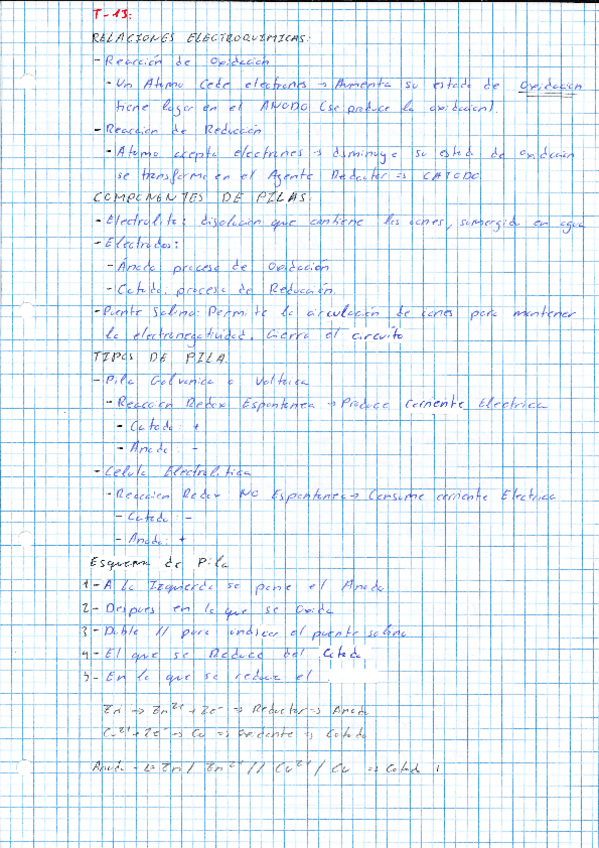 T-13:
RELACIONES ELECTROQUIMICAS:
- Reacción de Oxidación
- Un Atomo Cede electrones → Aumenta su estado de Oxidación
tiene lugar en el ANODO (se produce la oxidacion).
- Reaccion de Reducción
- Atomo acepta electrones → disminuye su estado de oxidación
se transforma en el Agente Reductor => CATODO
COMPONENTES DE PILAS:
- Electrolito: disolución que contiene los iones, sumergido en agua
- Electrodos:
- Ánodo: proceso de Oxidación
- Catodo: proceso de Reducción
- Puente Salino: Permite la circulación de iones para mantener
la electronegatividad. Cierra el circuito
TIPOS DE PILA.
- Pila Galvanica o Voltaica
- Reaccion Redox Espontanea → Produce Corriente Electrica
- Catodo: +
- Anodo: -
- Celula Electrolitica
- Reaccion Redox NO Espontanea → Consume corriente Electrica
- Catodo: -
- Anodo: +
Esquema de Pila
1 - A la Izquierda se pone el Anodo
2 - Despues en lo que se Oxida
3 - Doble // para indicar el puente salino
4 - El que se Reduce del Catodo
5 - En lo que se reduce el
Zn → Zn²⁺ + 2e⁻ → Reductor → Anodo
Cu²⁺ + 2e⁻ → Cu => Oxidante => Catodo
Anodo - Zn / Zn²⁺ // Cu²⁺ / Cu => Catodo